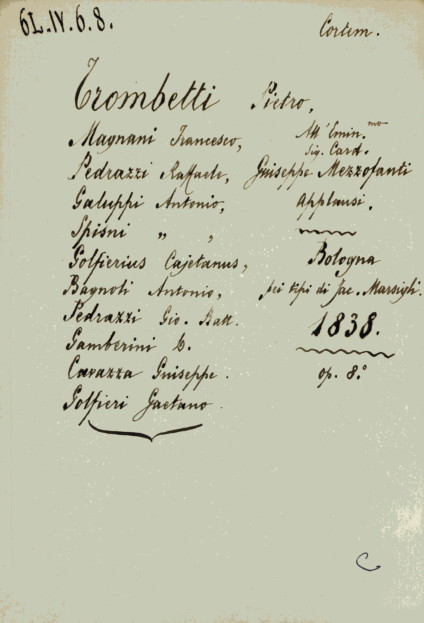 6L.IV.6.8.
Cortem.
Trombetti Pietro,
Magnani Francesco,
Pedrazzi Raffaele,
Galuppi Antonio,
Spisni „ ,
Golfierius Cajetanus,
Bagnoli Antonio,
Pedrazzi Gio. Batt.
Gamberini C.
Cavazza Guiseppe.
Golfieri Gaetano.
All' Emin.mo
Sig. Card.
Guiseppe Mezzofanti
Applausi.
Bologna
pei tipi di Jac. Marsigli.
1838.
op. 8.º
C